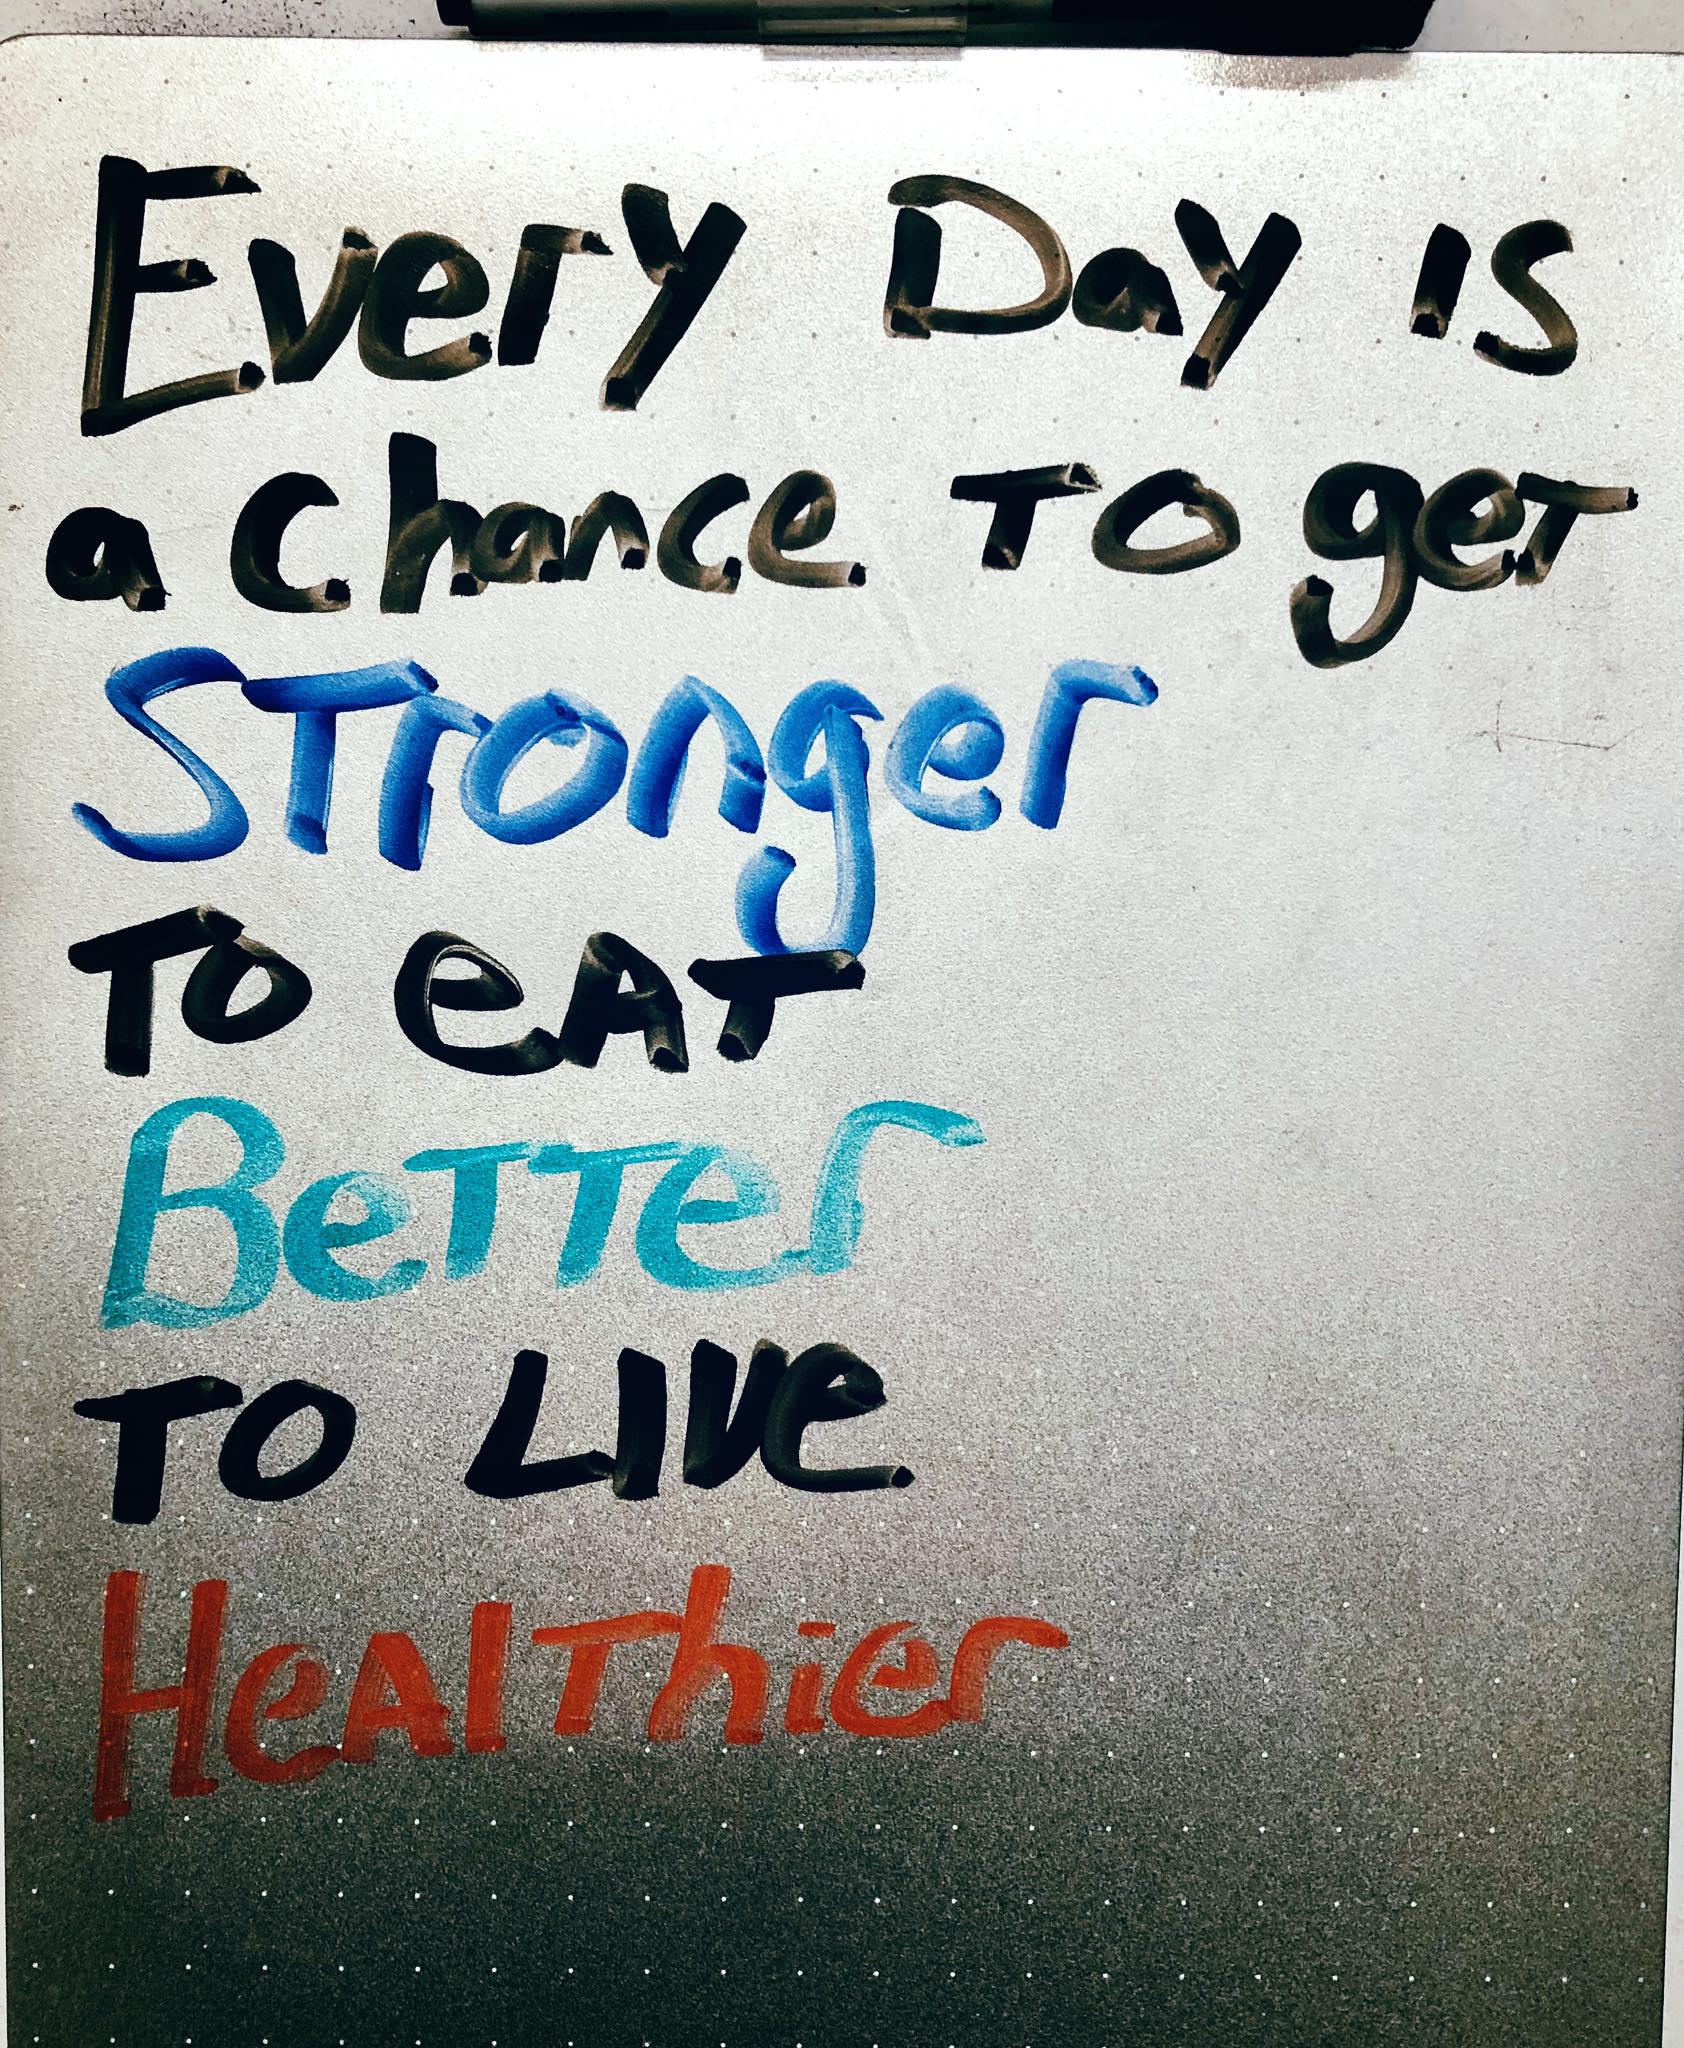 Every Day is
a chance To get
STronger
To eAT
BeTTer
TO LIVe
HeAlThier